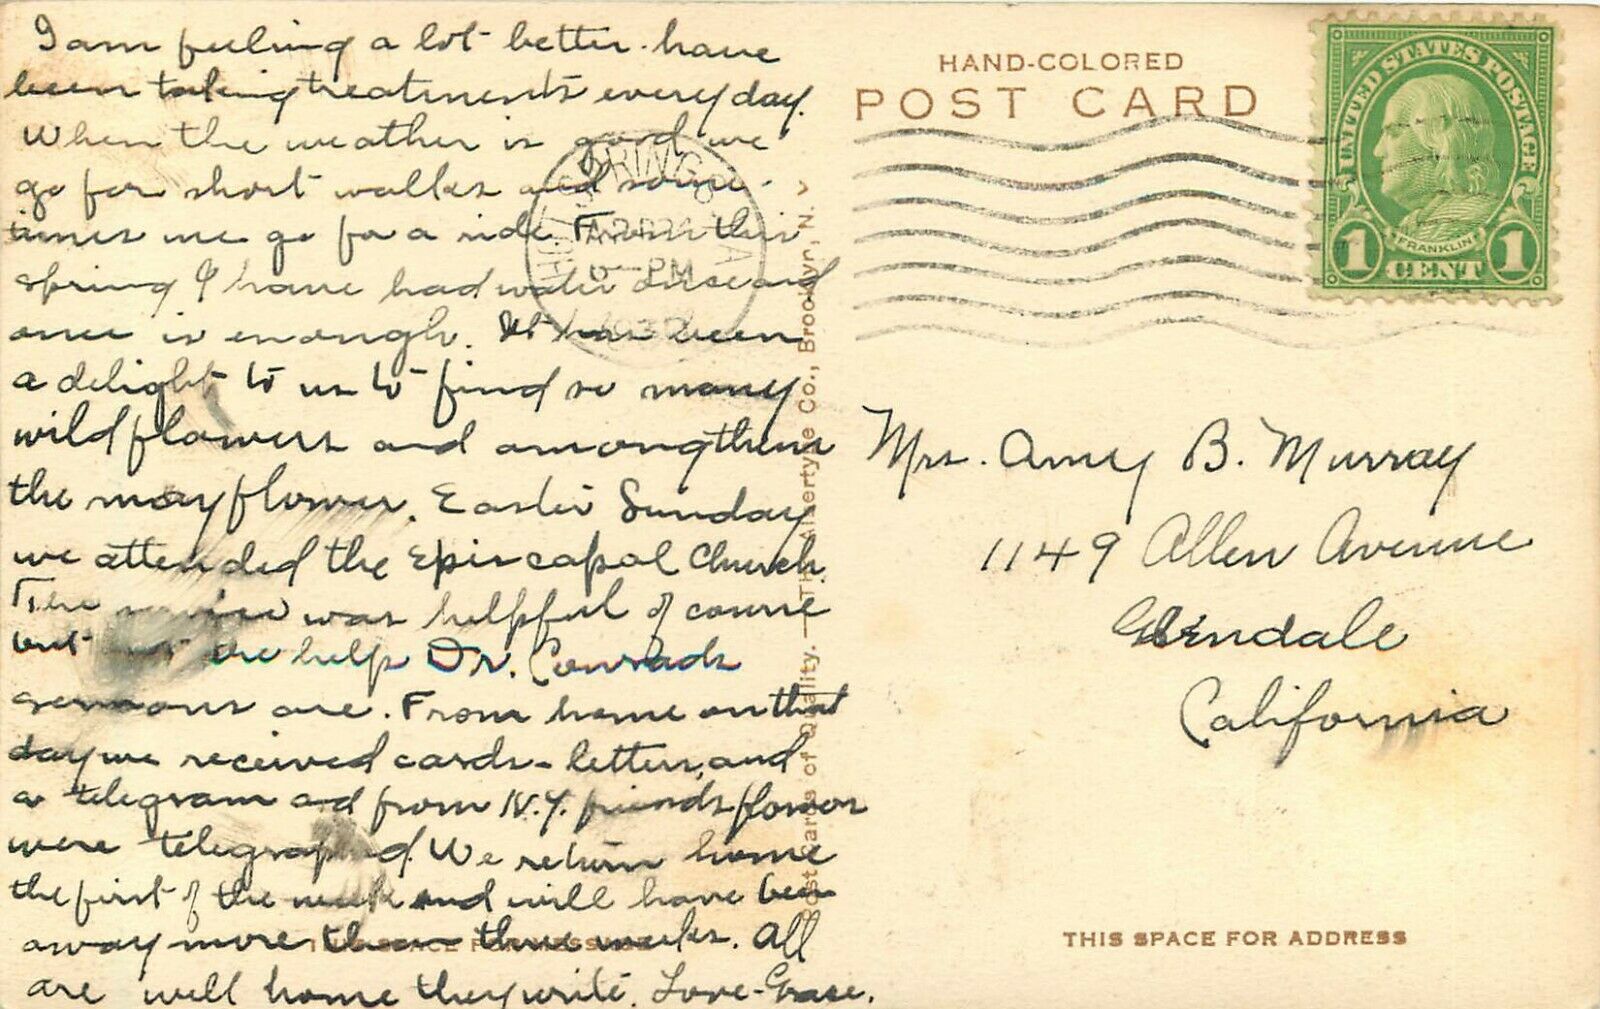 I am feeling a lot better. have
been taking treatments every day.
When the weather is good we
go for short walks and some-
times we go for a ride. From this
spring I have had water once and
once is enough. It has been
a delight to us to find so many
wildflowers and among them
the mayflower. Easter Sunday
we attended the Episcopal Church.
The service was helpful of course
but not the help Dr. Conrads
sermons are. From home on that
day we received cards - letters, and
a telegram and from N.Y. friends flowers
were telegraphed. We return home
the first of the week and will have been
away more than three weeks. All
are well home they write. Love - Grace.
HAND-COLORED
POST CARD
UNITED STATES POSTAGE
FRANKLIN
1 CENT 1
HOT SPRINGS
VA
PM
Mrs. Amy B. Murray
1149 Allen Avenue
Glendale
California
THIS SPACE FOR ADDRESS
Post Cards of Quality. — The Albertype Co., Brooklyn, N. Y.
THIS SPACE FOR